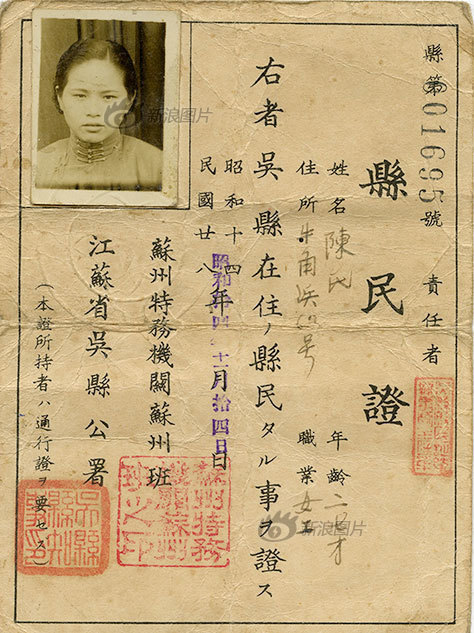 縣第01695號
責任者
縣民證
姓名 陳氏
年齡 二 才
住所 牛角浜 号
職業 女工
右者吳縣在住ノ縣民タル事ヲ證ス
昭和十四
民國廿八
年 月 日
十一月拾四日
蘇州特務機關蘇州班
江蘇省吳縣公署
(本證所持者ハ通行證ヲ要セズ)
蘇州特務
機關蘇州
班之印
新浪图片
新浪图片